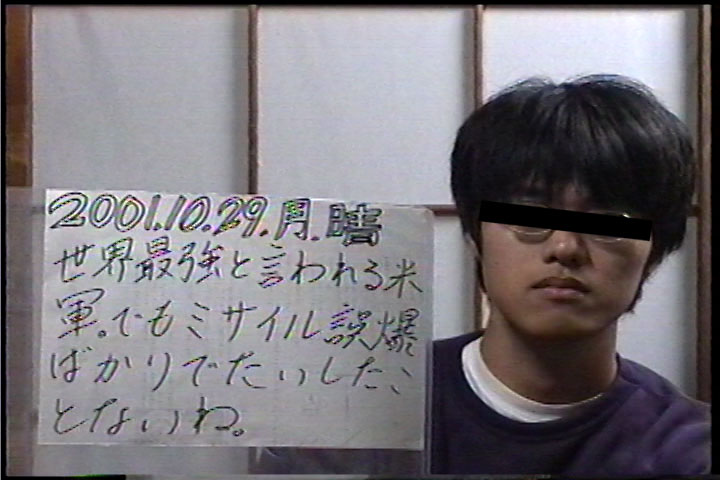 2001.10.29.月.晴
世界最強と言われる米
軍。でもミサイル誤爆
ばかりでたいしたこ
とないわ。